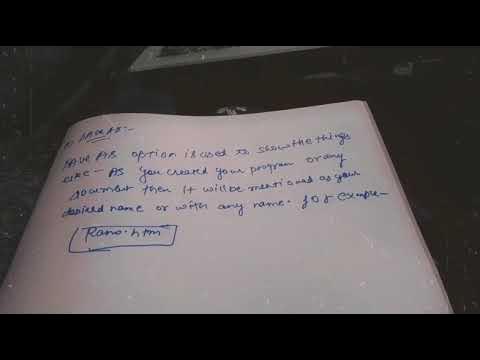 SAVE AS:-
SAVE AS option is used to show the things
like - As you created your program or any
document then it will be mentioned as your
desired name or with any name. for example-
Ramo.htm